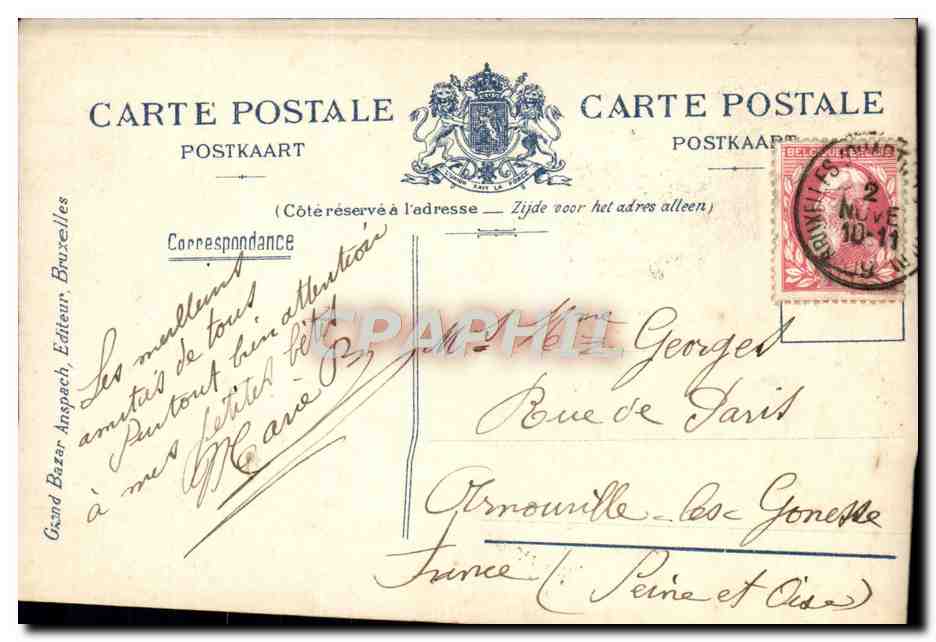 CARTE POSTALE
POSTKAART
CARTE POSTALE
POSTKAART
L'UNION FAIT LA FORCE
(Côté réservé à l'adresse — Zijde voor het adres alleen)
Correspondance
Grand Bazar Anspach, Editeur, Bruxelles
BRUXELLES
2
NOVE
10-11
09
Les meilleurs
amitiés de tous
Surtout bien attention
à mes petites bêtes
Marie
CPAPHIL
Mr & Mme Georges
Rue de Paris
Arnouville-les-Gonesse
France (Seine et Oise)